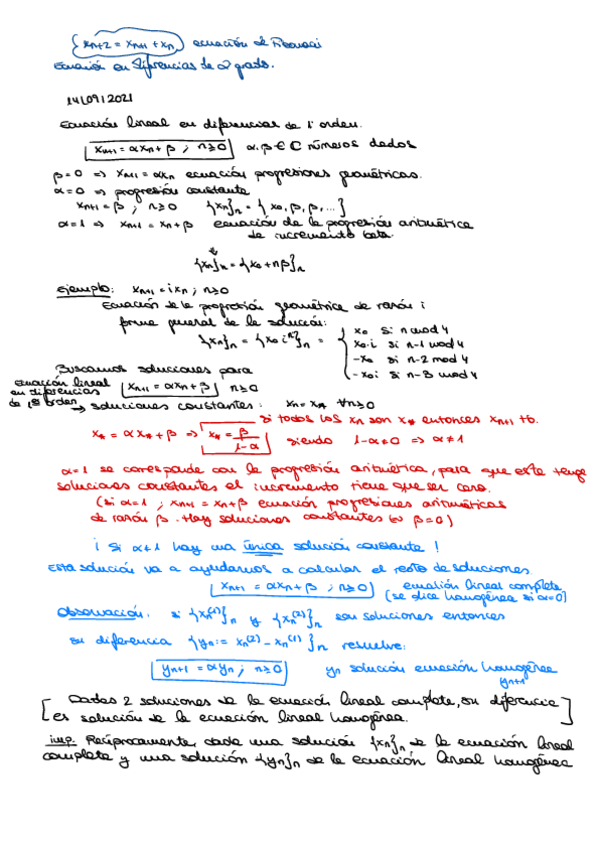 {x_{n+2} = x_{n+1} + x_n} ecuación de Fibonacci
Ecuación en diferencias de 2º grado.
14/09/2021
Ecuación lineal en diferencias de 1º orden.
x_{n+1} = αx_n + β ; n≥0 α, β ∈ ℂ números dados
β=0 => x_{n+1} = αx_n ecuación progresiones geométricas.
α=0 => progresión constante
x_{n+1} = β ; n≥0 {x_n}_n = {x_0, β, β, ...}
α=1 => x_{n+1} = x_n + β ecuación de la progresión aritmética
de incremento beta.
⇓
{x_n}_n = {x_0 + nβ}_n
Ejemplo: x_{n+1} = i x_n ; n≥0
Ecuación de la progresión geométrica de razón i
forma general de la solución:
{x_n}_n = {x_0 i^n}_n = { x_0 si n mod 4
x_0·i si n-1 mod 4
-x_0 si n-2 mod 4
-x_0 i si n-3 mod 4
Buscamos soluciones para
ecuación lineal en diferencias de 1er orden x_{n+1} = αx_n + β n≥0
→ soluciones constantes: x_n = x_* ∀n≥0
si todos los x_n son x_* entonces x_{n+1} tb.
x_* = αx_* + β => x_* = β/(1-α) siendo 1-α≠0 => α≠1
α=1 se corresponde con la progresión aritmética, para que esta tenga
soluciones constantes el incremento tiene que ser cero.
(si α=1 ; x_{n+1} = x_n + β ecuación progresiones aritméticas
de razón β. Hay soluciones constantes ⇔ β=0)
¡ Si α≠1 hay una única solución constante !
Esta solución va a ayudarnos a calcular el resto de soluciones
x_{n+1} = αx_n + β ; n≥0 ecuación lineal completa
(se dice homogénea si α=0)
Observación: si {x_n^{(1)}}_n y {x_n^{(2)}}_n son soluciones entonces
su diferencia {y_n := x_n^{(2)} - x_n^{(1)}}_n resuelve:
y_{n+1} = αy_n ; n≥0 y_n solución ecuación homogénea
y_{n+1}
[Dadas 2 soluciones de la ecuación lineal completa, su diferencia
es solución de la ecuación lineal homogénea.]
imp. Recíprocamente, dada una solución {x_n}_n de la ecuación lineal
completa y una solución {y_n}_n de la ecuación lineal homogénea